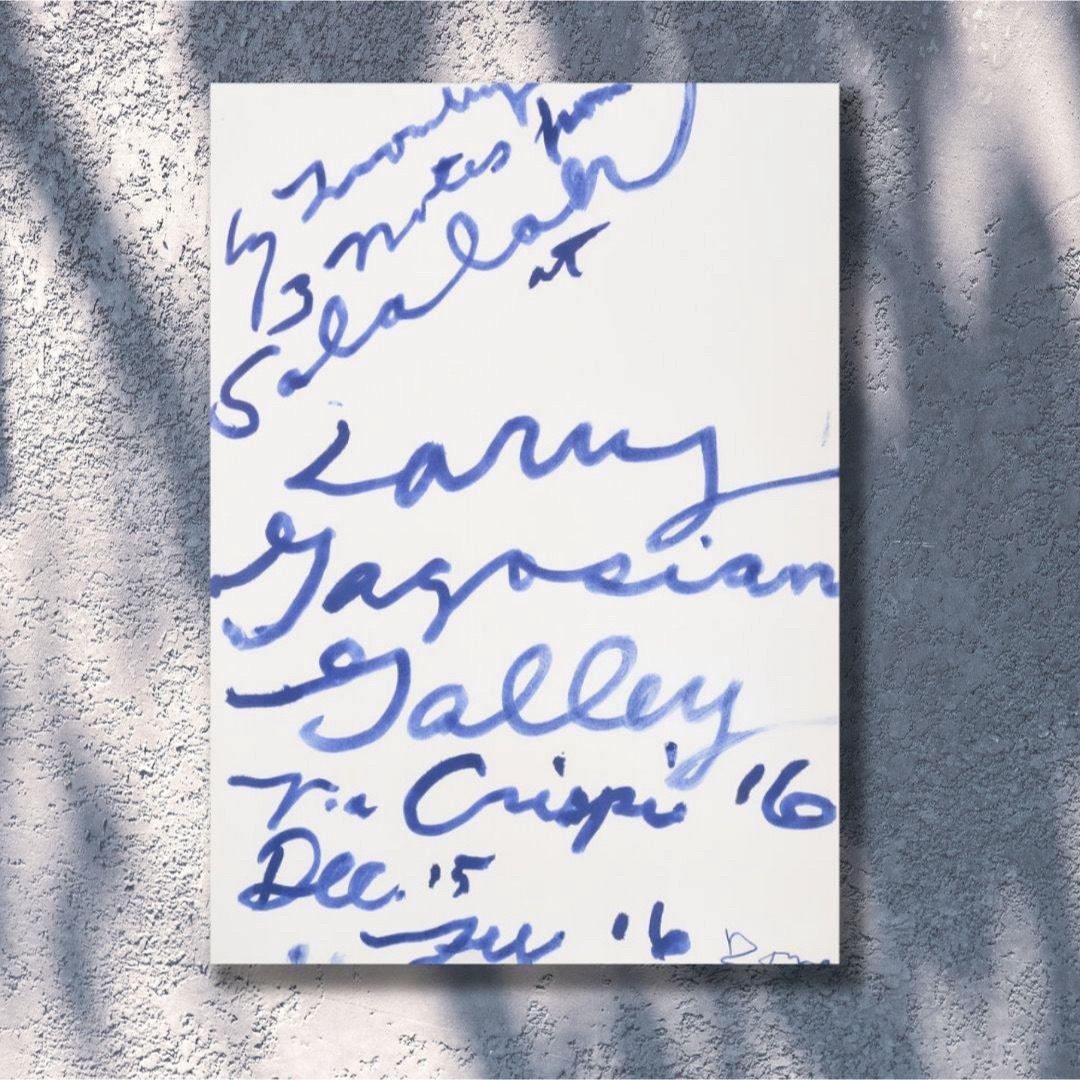 by Twombly
3 Notes from
Salalah
at
Larry
Gagosian
Galley
Via Crispi '16
Dec. '15
'16